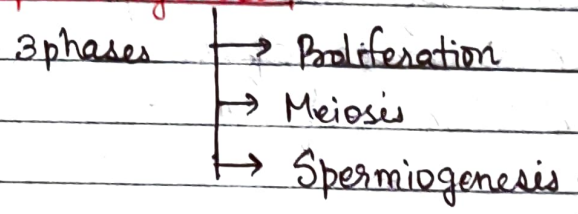 3 phases → Proliferation
→ Meiosis
→ Spermiogenesis